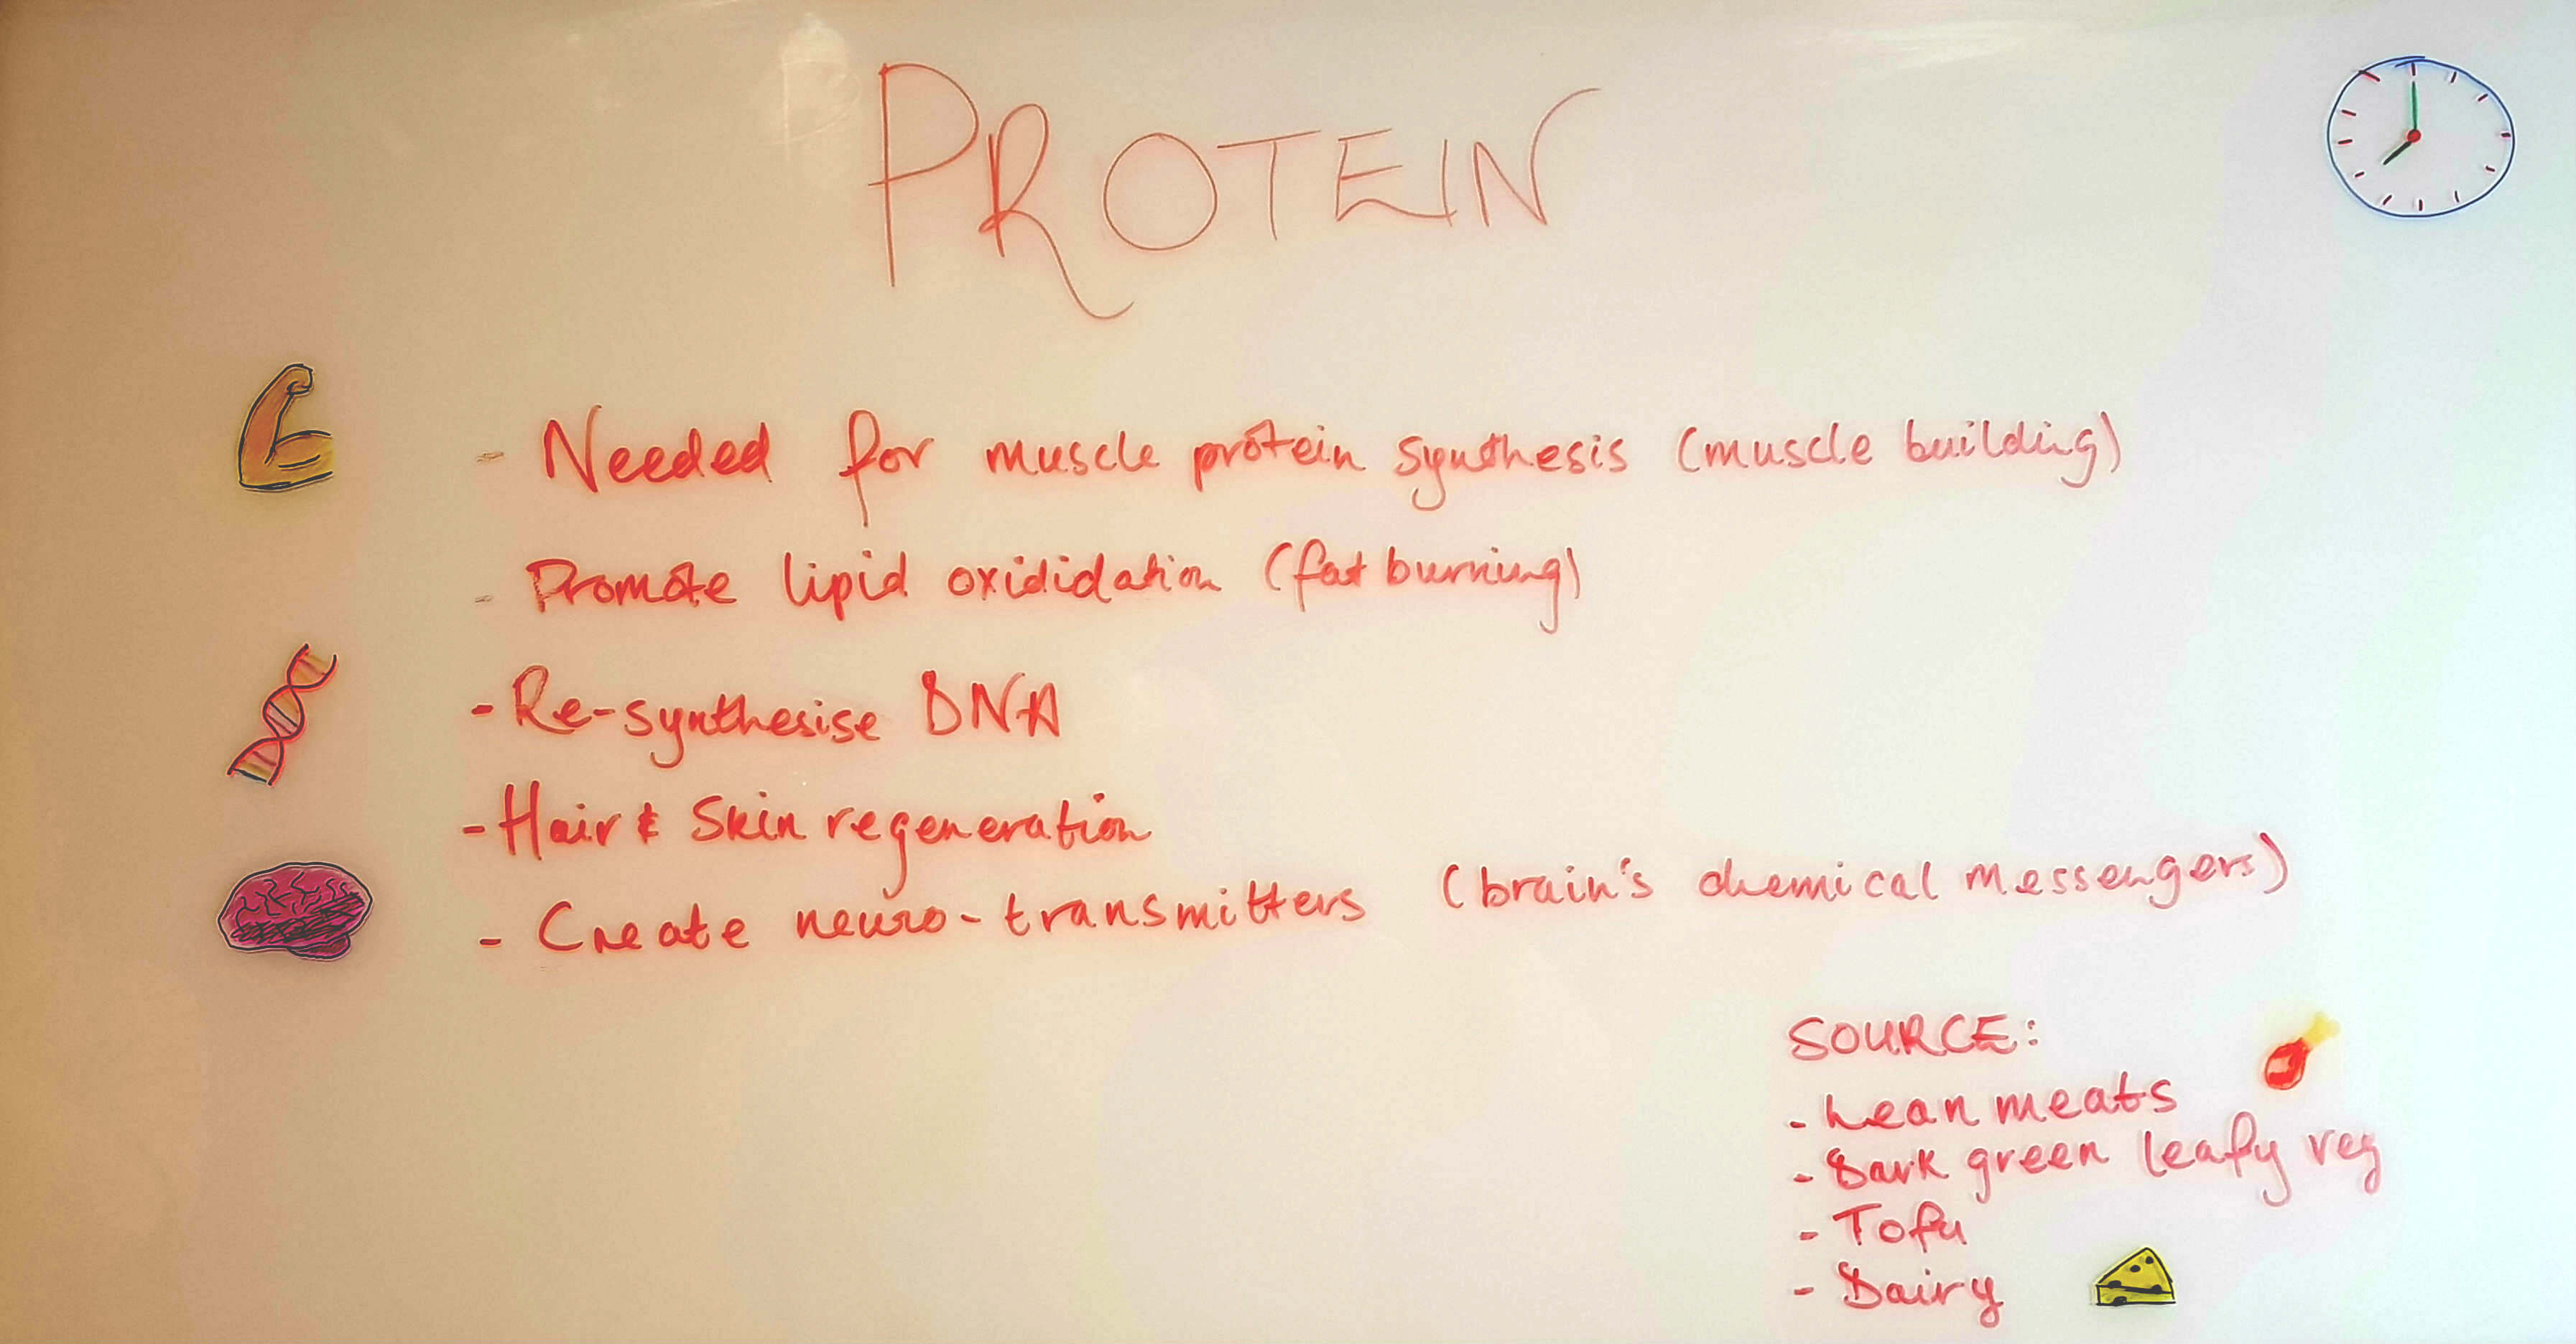 PROTEIN
- Needed for muscle protein synthesis (muscle building)
- Promote lipid oxididation (fat burning)
- Re-synthesise DNA
- Hair & Skin regeneration
- Create neuro-transmitters (brain's chemical messengers)
SOURCE:
- Lean meats
- Dark green leafy veg
- Tofu
- Dairy